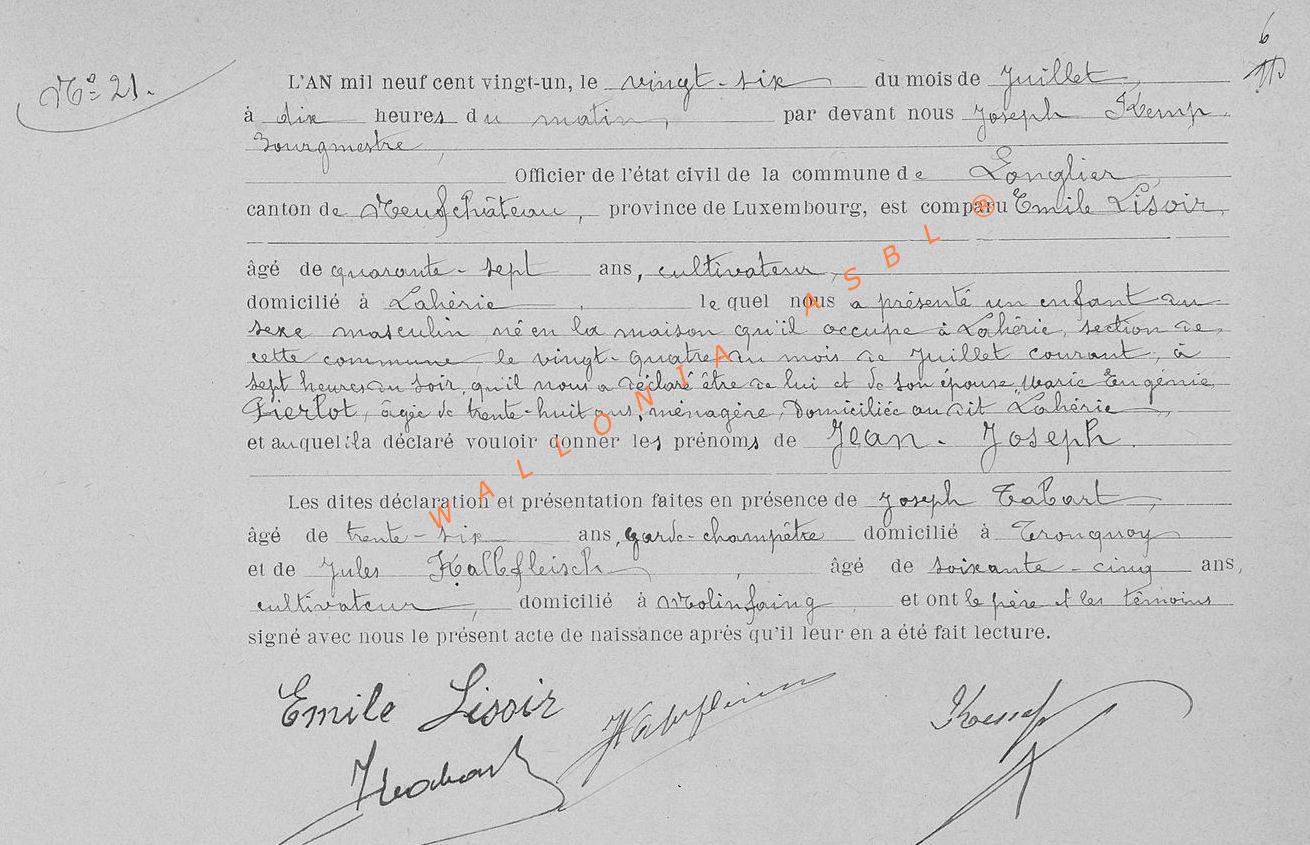 6
N° 21.
L'AN mil neuf cent vingt-un, le vingt-six du mois de Juillet,
à dix heures du matin, par devant nous Joseph Kemp,
Bourgmestre,
Officier de l'état civil de la commune de Longlier,
canton de Neufchâteau, province de Luxembourg, est comparu Emile Lisoir,
âgé de quarante-sept ans, cultivateur,
domicilié à Lahérie, lequel nous a présenté un enfant du
sexe masculin né en la maison qu'il occupe à Lahérie, section de
cette commune, le vingt-quatre du mois de Juillet courant, à
sept heures du soir, qu'il nous a déclaré être de lui et de son épouse Marie Eugénie
Pierlot, âgée de trente-huit ans, ménagère, domiciliée au dit Lahérie,
et auquel il a déclaré vouloir donner les prénoms de Jean-Joseph.
Les dites déclaration et présentation faites en présence de Joseph Tabart,
âgé de trente-six ans, garde-champêtre domicilié à Tronquoy
et de Jules Kalbfleisch, âgé de soixante-cinq ans,
cultivateur, domicilié à Molinfaing, et ont le père et les témoins
signé avec nous le présent acte de naissance après qu'il leur en a été fait lecture.
Emile Lisoir
WALLONIA ASBL ®